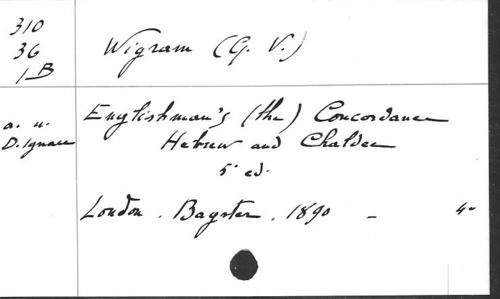 310
36
1B
Wigram (G. V.)
a. u.
D. Ignace
Englishman's (the) Concordance
Hebrew and Chaldee
5° ed.
London. Bagster. 1890 - 4°